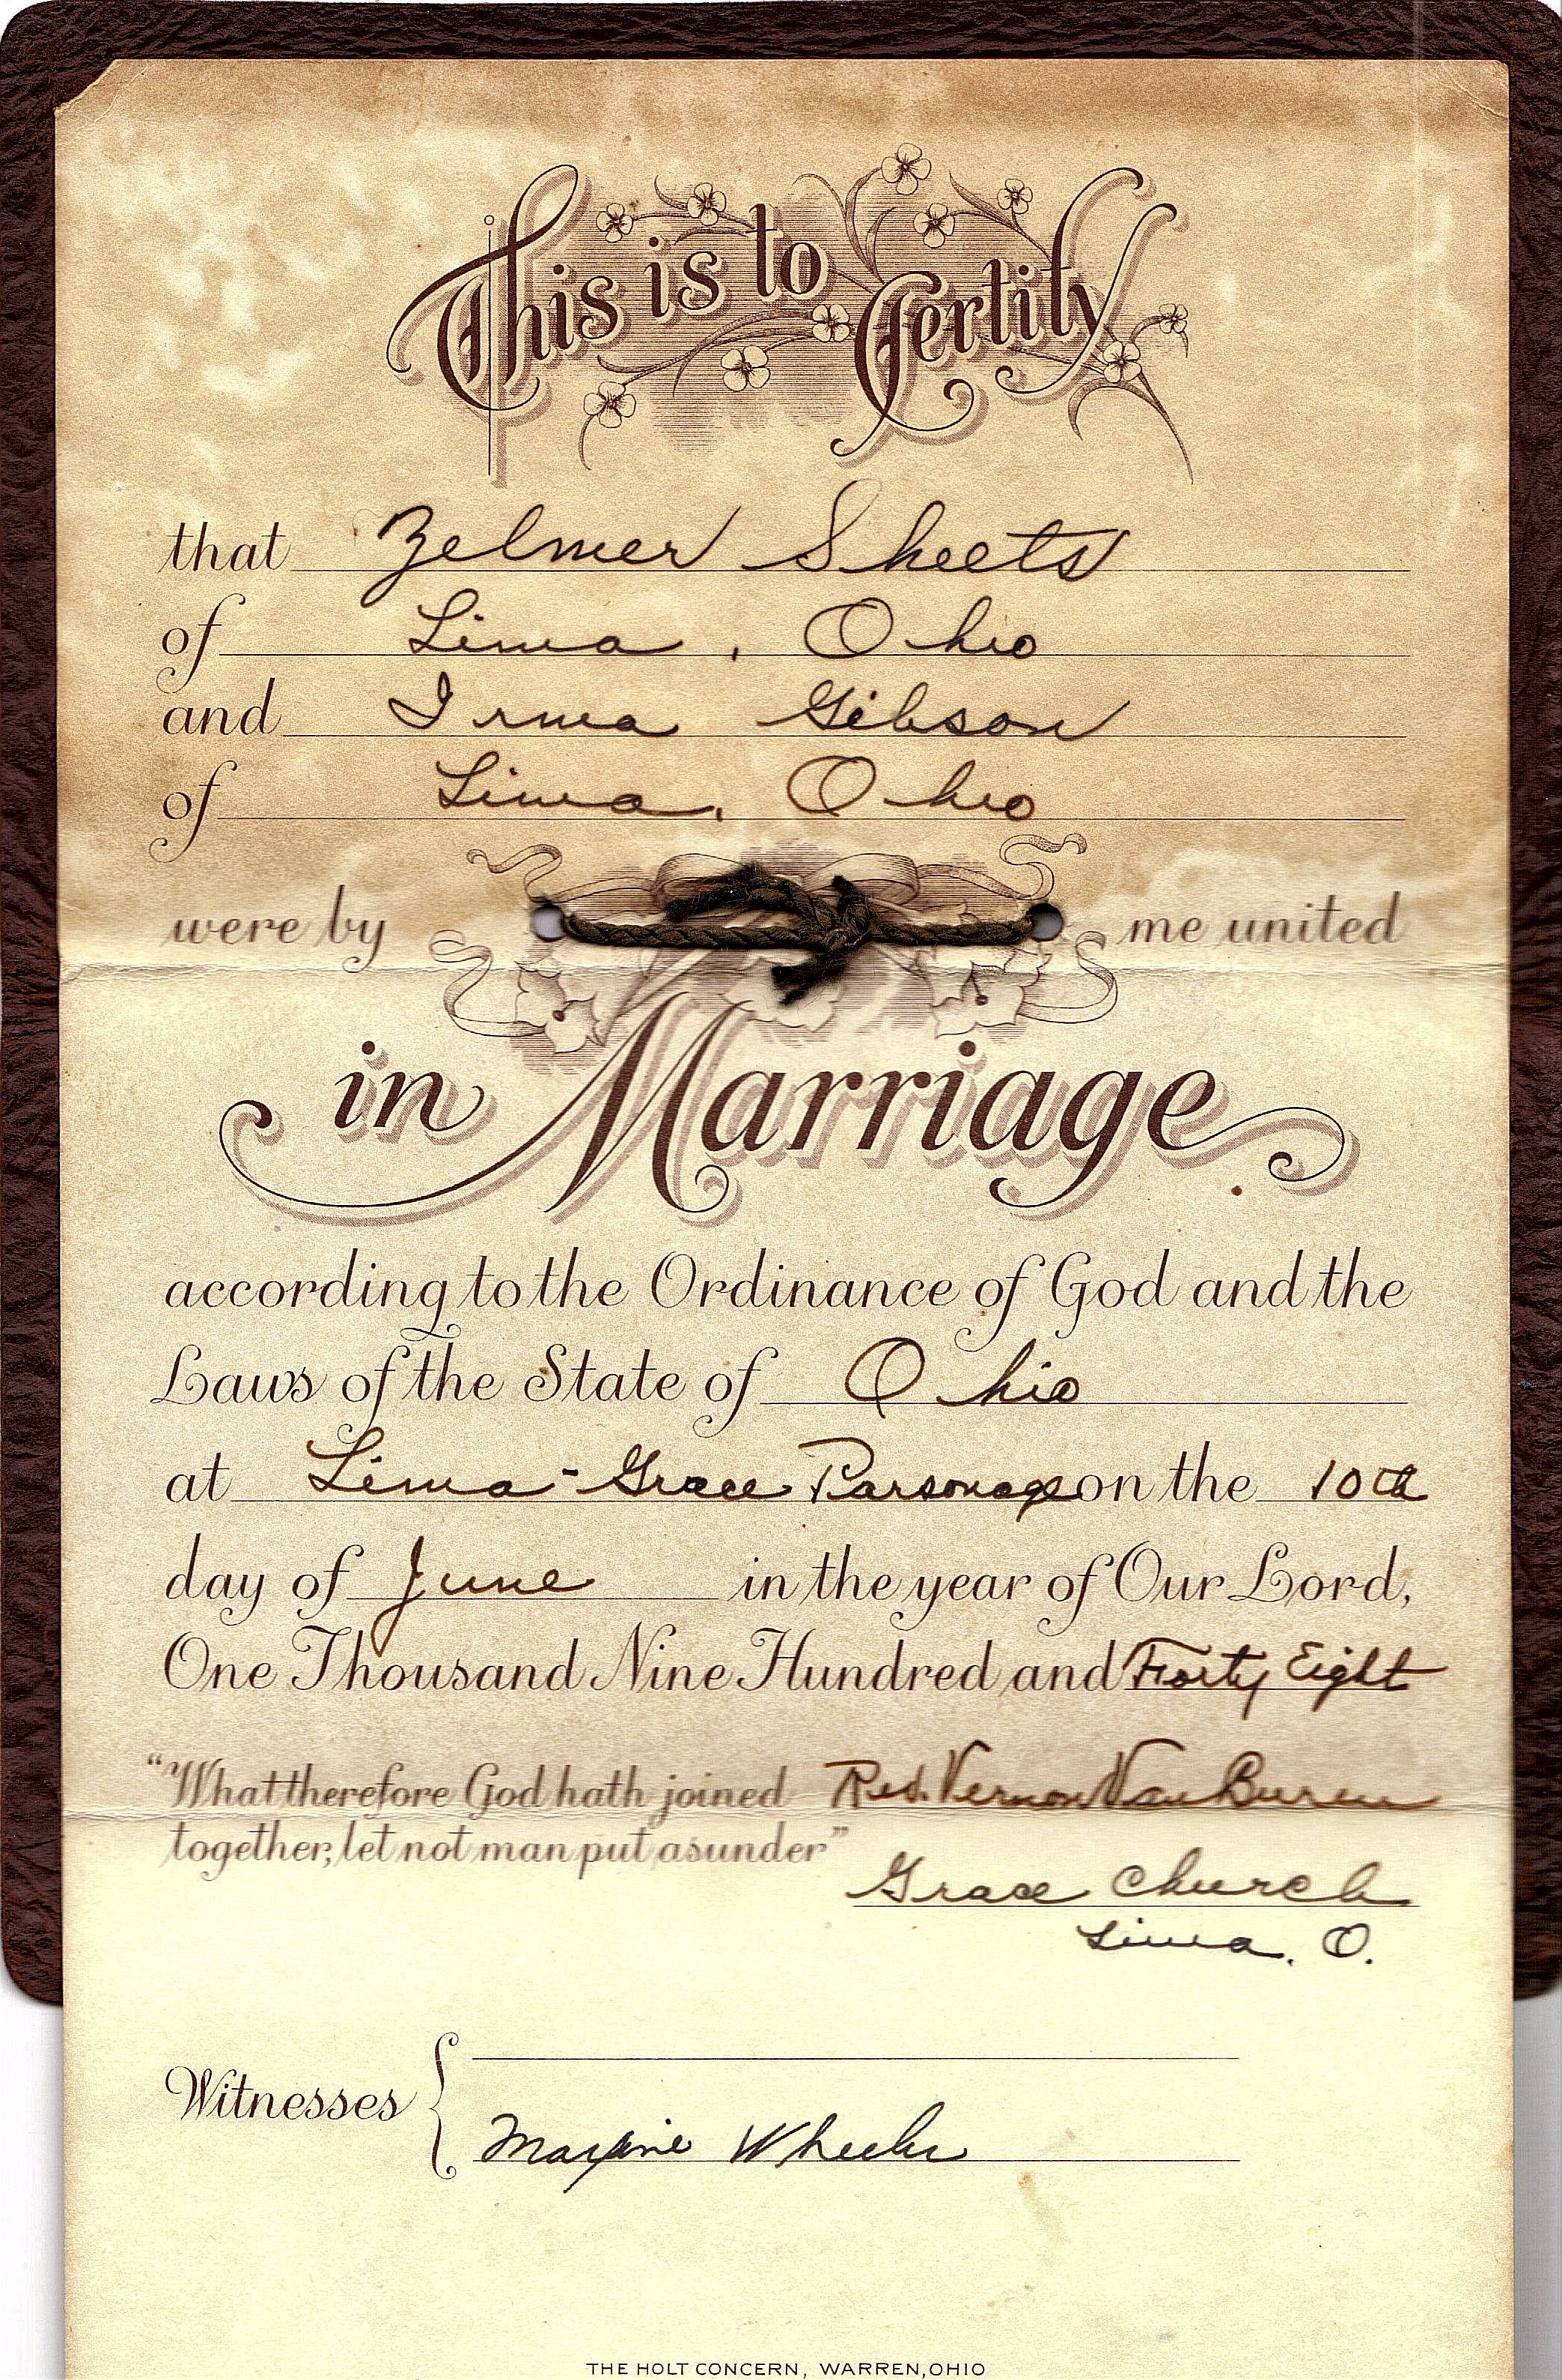 This is to Certify
that Zelmer Sheets
of Lima, Ohio
and Irma Gibson
of Lima, Ohio
were by me united
in Marriage
according to the Ordinance of God and the
Laws of the State of Ohio
at Lima - Grace Parsonage on the 10th
day of June in the year of Our Lord,
One Thousand Nine Hundred and Forty Eight
"What therefore God hath joined Rev. Vernon Van Buren
together, let not man put asunder"
Grace Church
Lima, O.
Witnesses
Maxine Wheeler
THE HOLT CONCERN, WARREN, OHIO